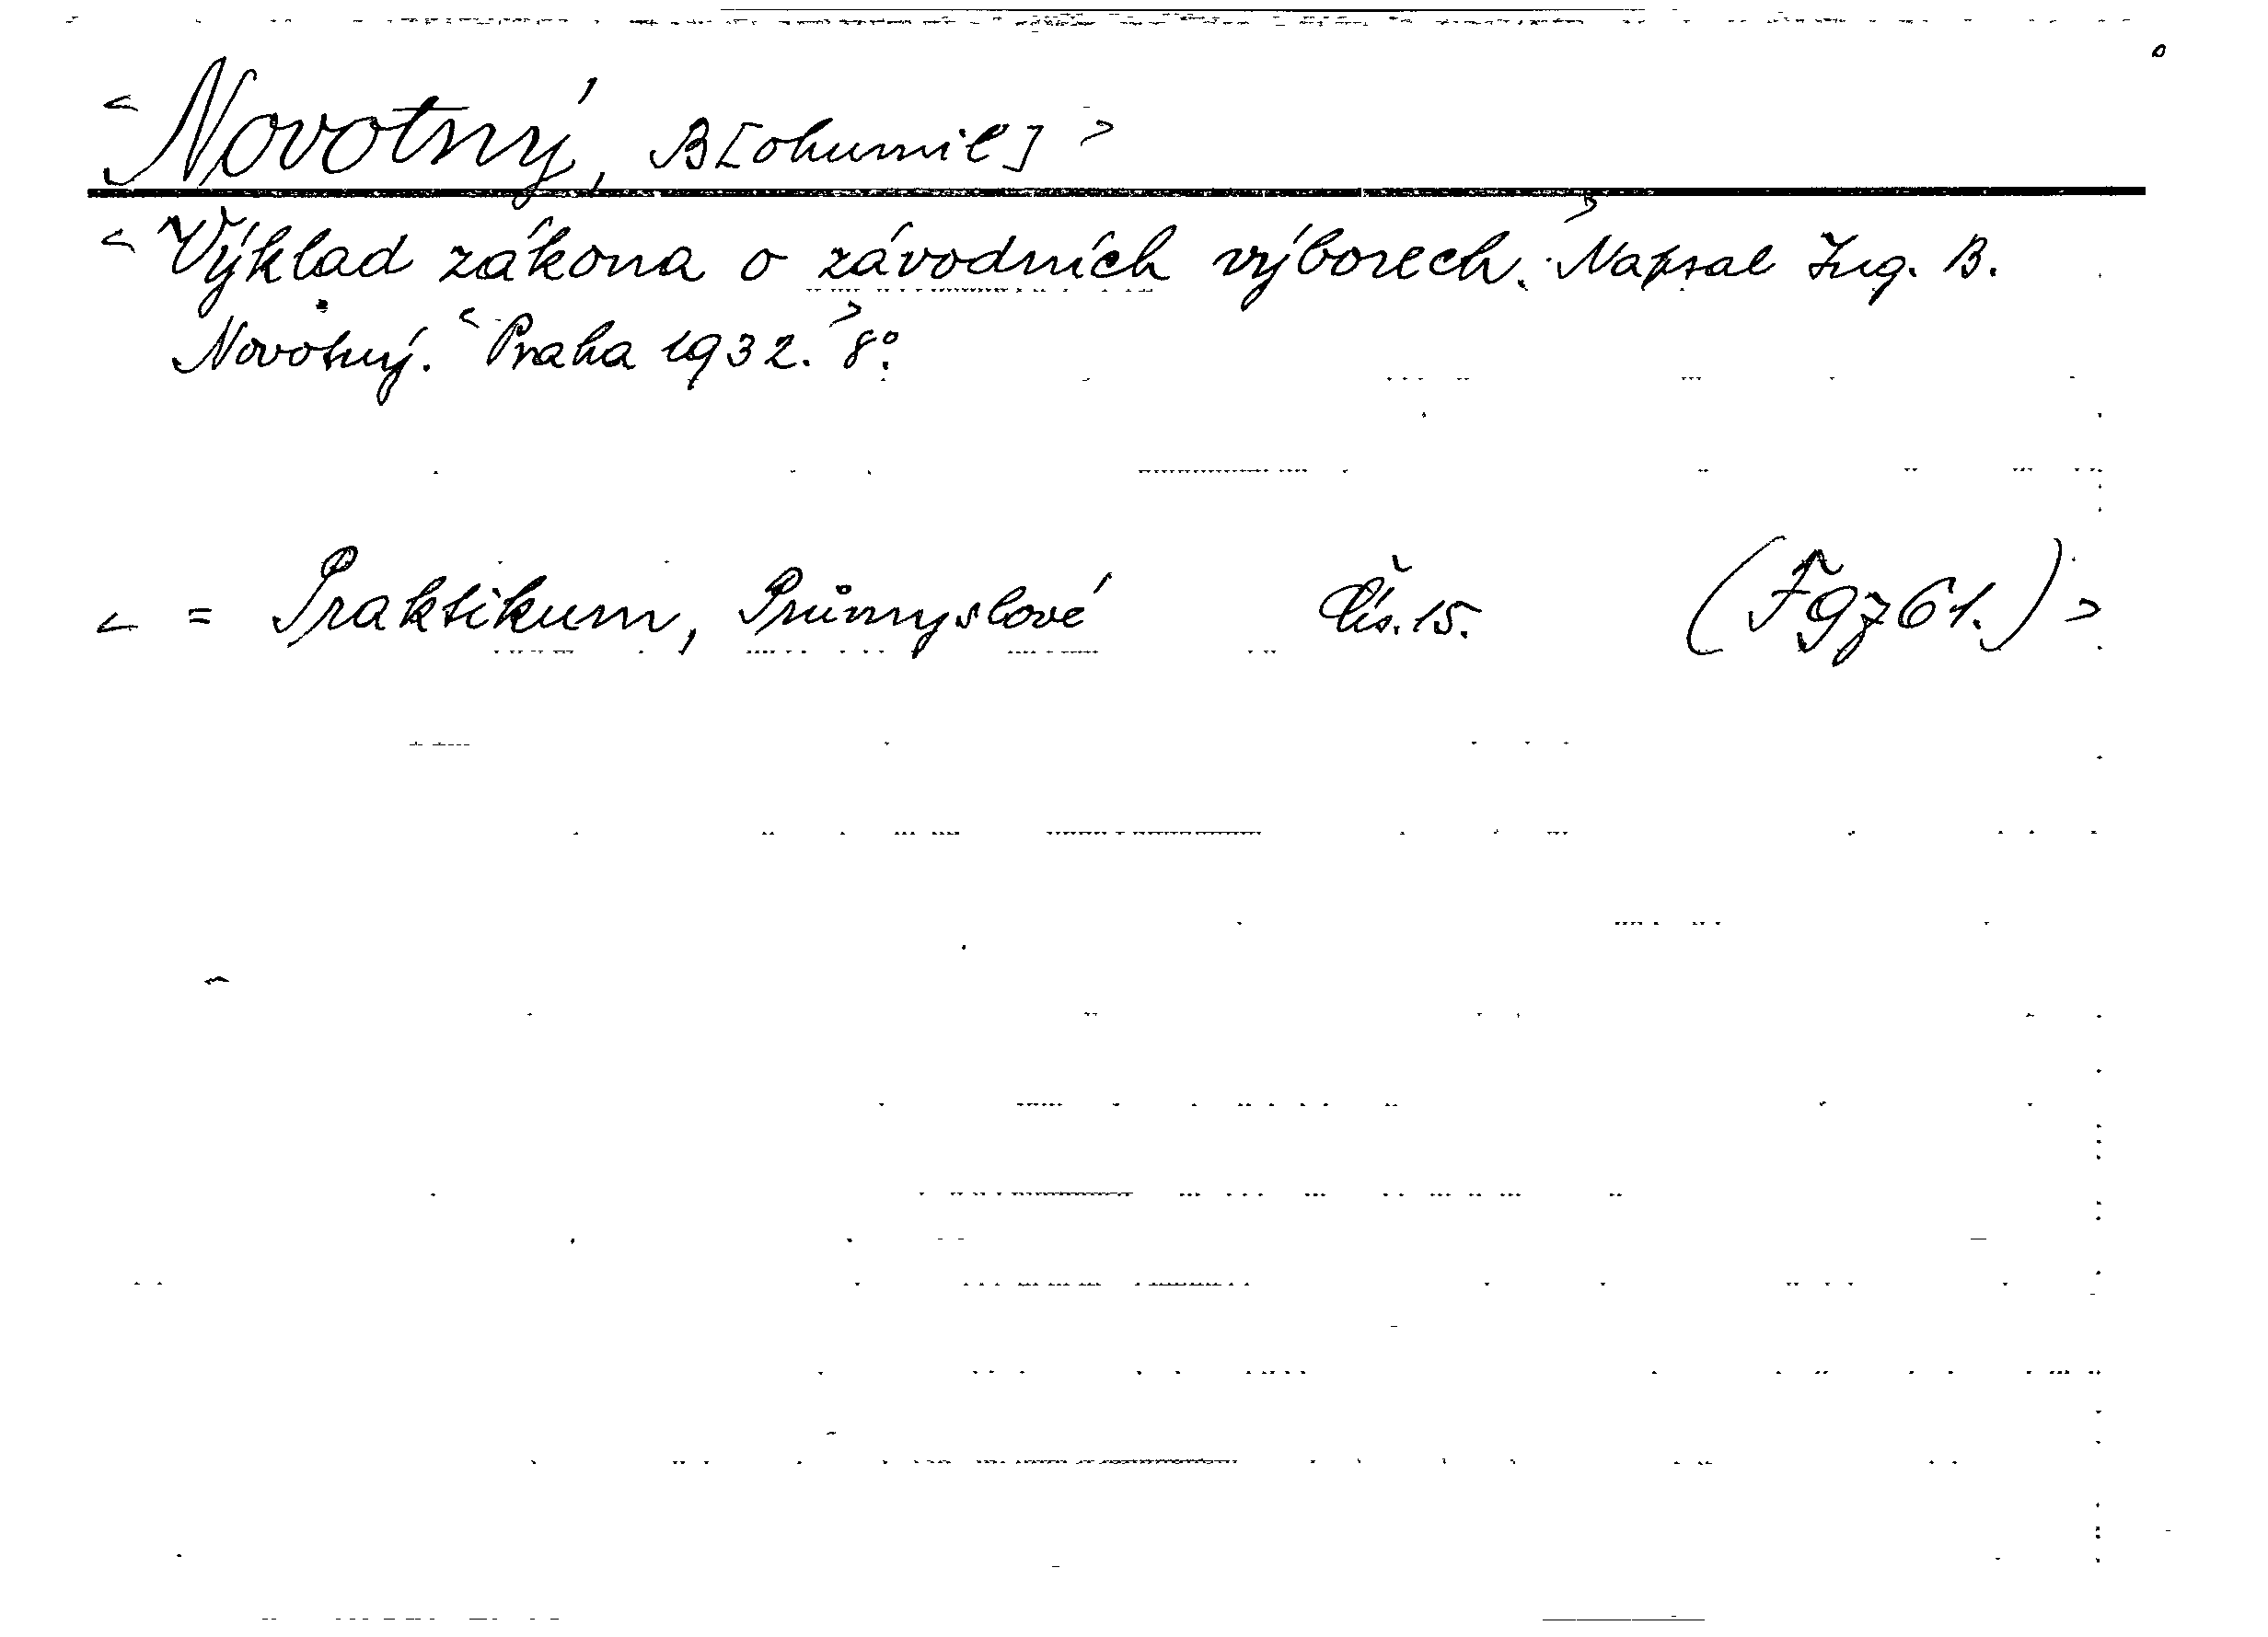 <Novotný, B[ohumil]>
<Výklad zákona o závodních výborech.> Napsal Ing. B.
Novotný. <Praha 1932.> 8°.
< = Praktikum, Průmyslové Čís. 15. (F 9761.) >